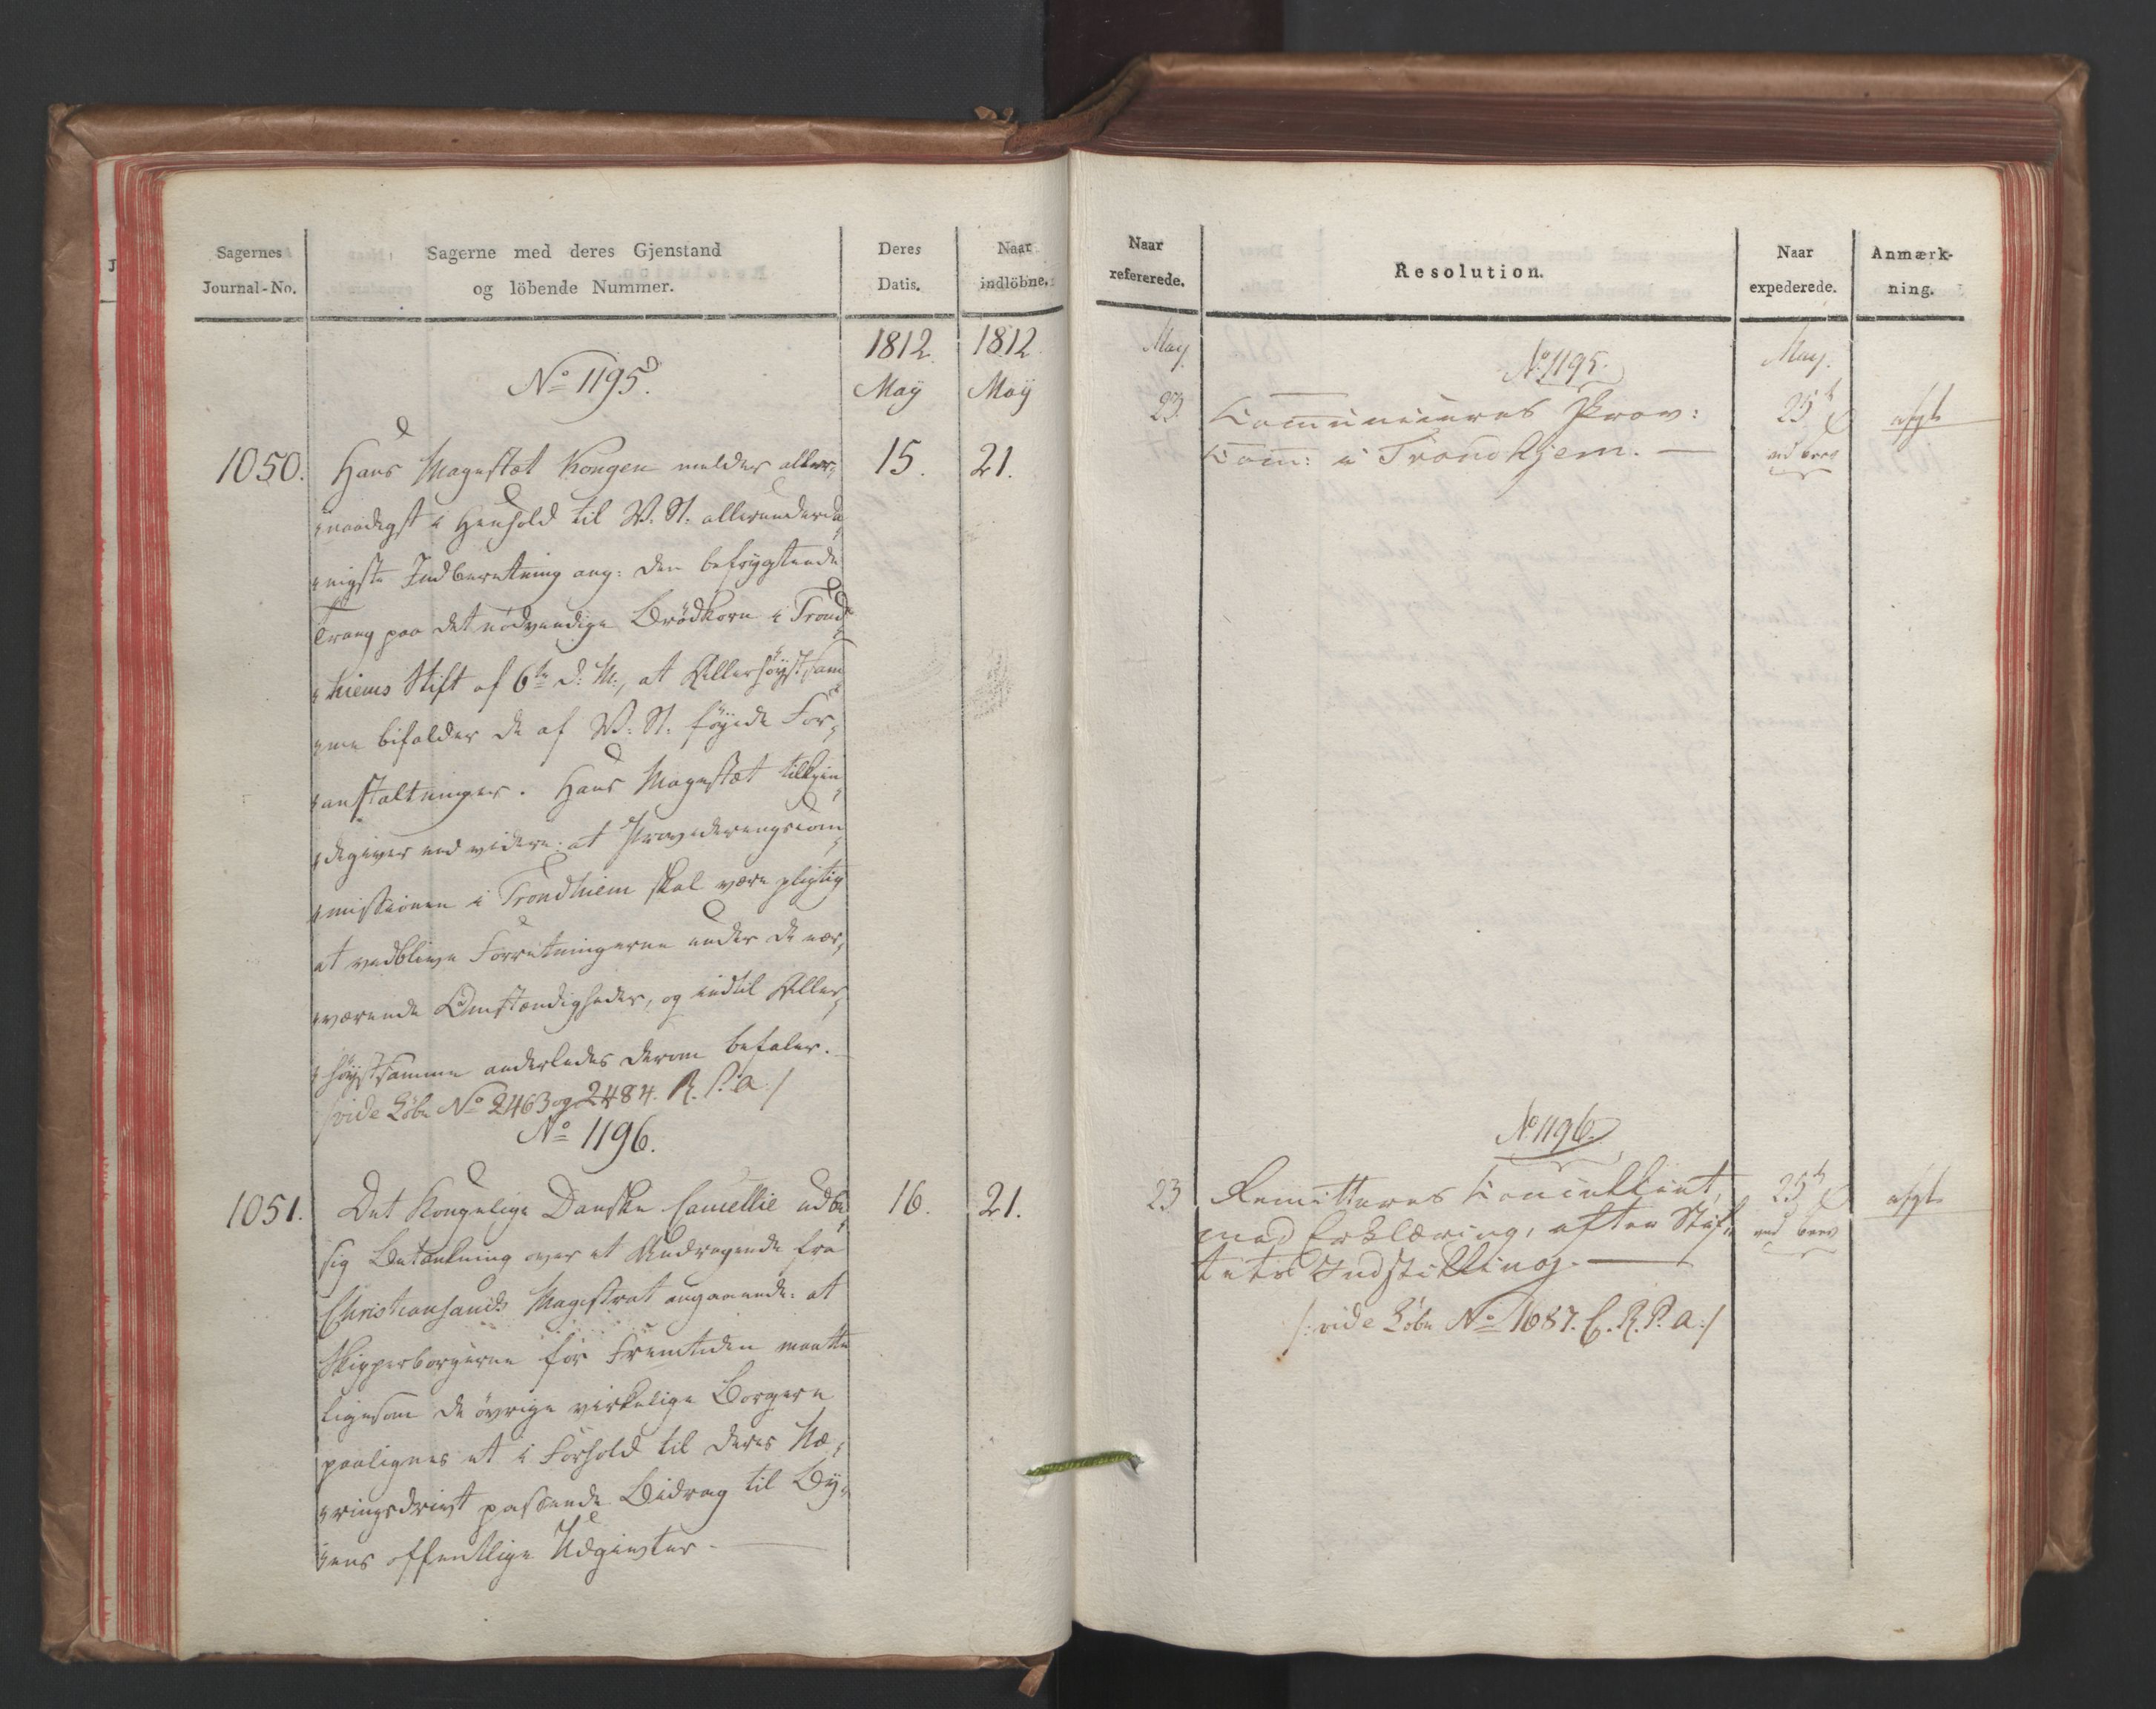 Sagernes
Journal-No.
Sagerne med deres Gjenstand
og löbende Nummer.
Deres
Datis.
Naar
indlöbne.
1812.
1812
May
May
No 1195.
1050.
Hans Magestæt Kongen melder aller,,
15.
21.
,,naadigst i Henhold til V. St. allerunderda,,
,,nigste Indberetning ang: den befrygtende
Trang paa det nödvendige Brödkorn i Trond,,
,,hiems Stift af 6te d: M:, at Allerhöystsam,,
,,me bifalder de af V: St. föyede For,,
,,anstaltninger. Hans Magestæt tilkjen,,
,,degiver end videre: at Provideringscom,,
,,missionen i Trondhiem skal være pligtig
at vedblive Forretningerne under de nær,,
,,værende Omstændigheder, og indtil Aller,,
,,höystsamme anderledes derom befaler.
/vide Löbe No 2463 og 2484. R. P. a:/
No 1196.
1051.
Det Kongelige Danske Cancellie udbe,,
16.
21.
sig Betænkning over et Andragende fra
Christiansands Magistrat angaaende: at
Skipperborgerne for Fremtiden maatte
ligesom de övrige virkelige Borgere
paalignes et i Forhold til deres Næ,,
,,ringsdrivt passende Bidrag til By,,
,,ens offentlige Udgivter.
Naar
refererede.
Resolution.
Naar
expederede.
Anmærk-
ning.
May
No 1195.
May.
23.
Communiceres Prov:
25
afgt
Com: i Trondhjem.
ved brev
No 1196.
23
Remitteres Cancelliet,
25
afgt
med Erklæring, efter Stif,,
ved brev
tets Indstilling.
/: vide Löbe No 1687. C. R. P. a:/